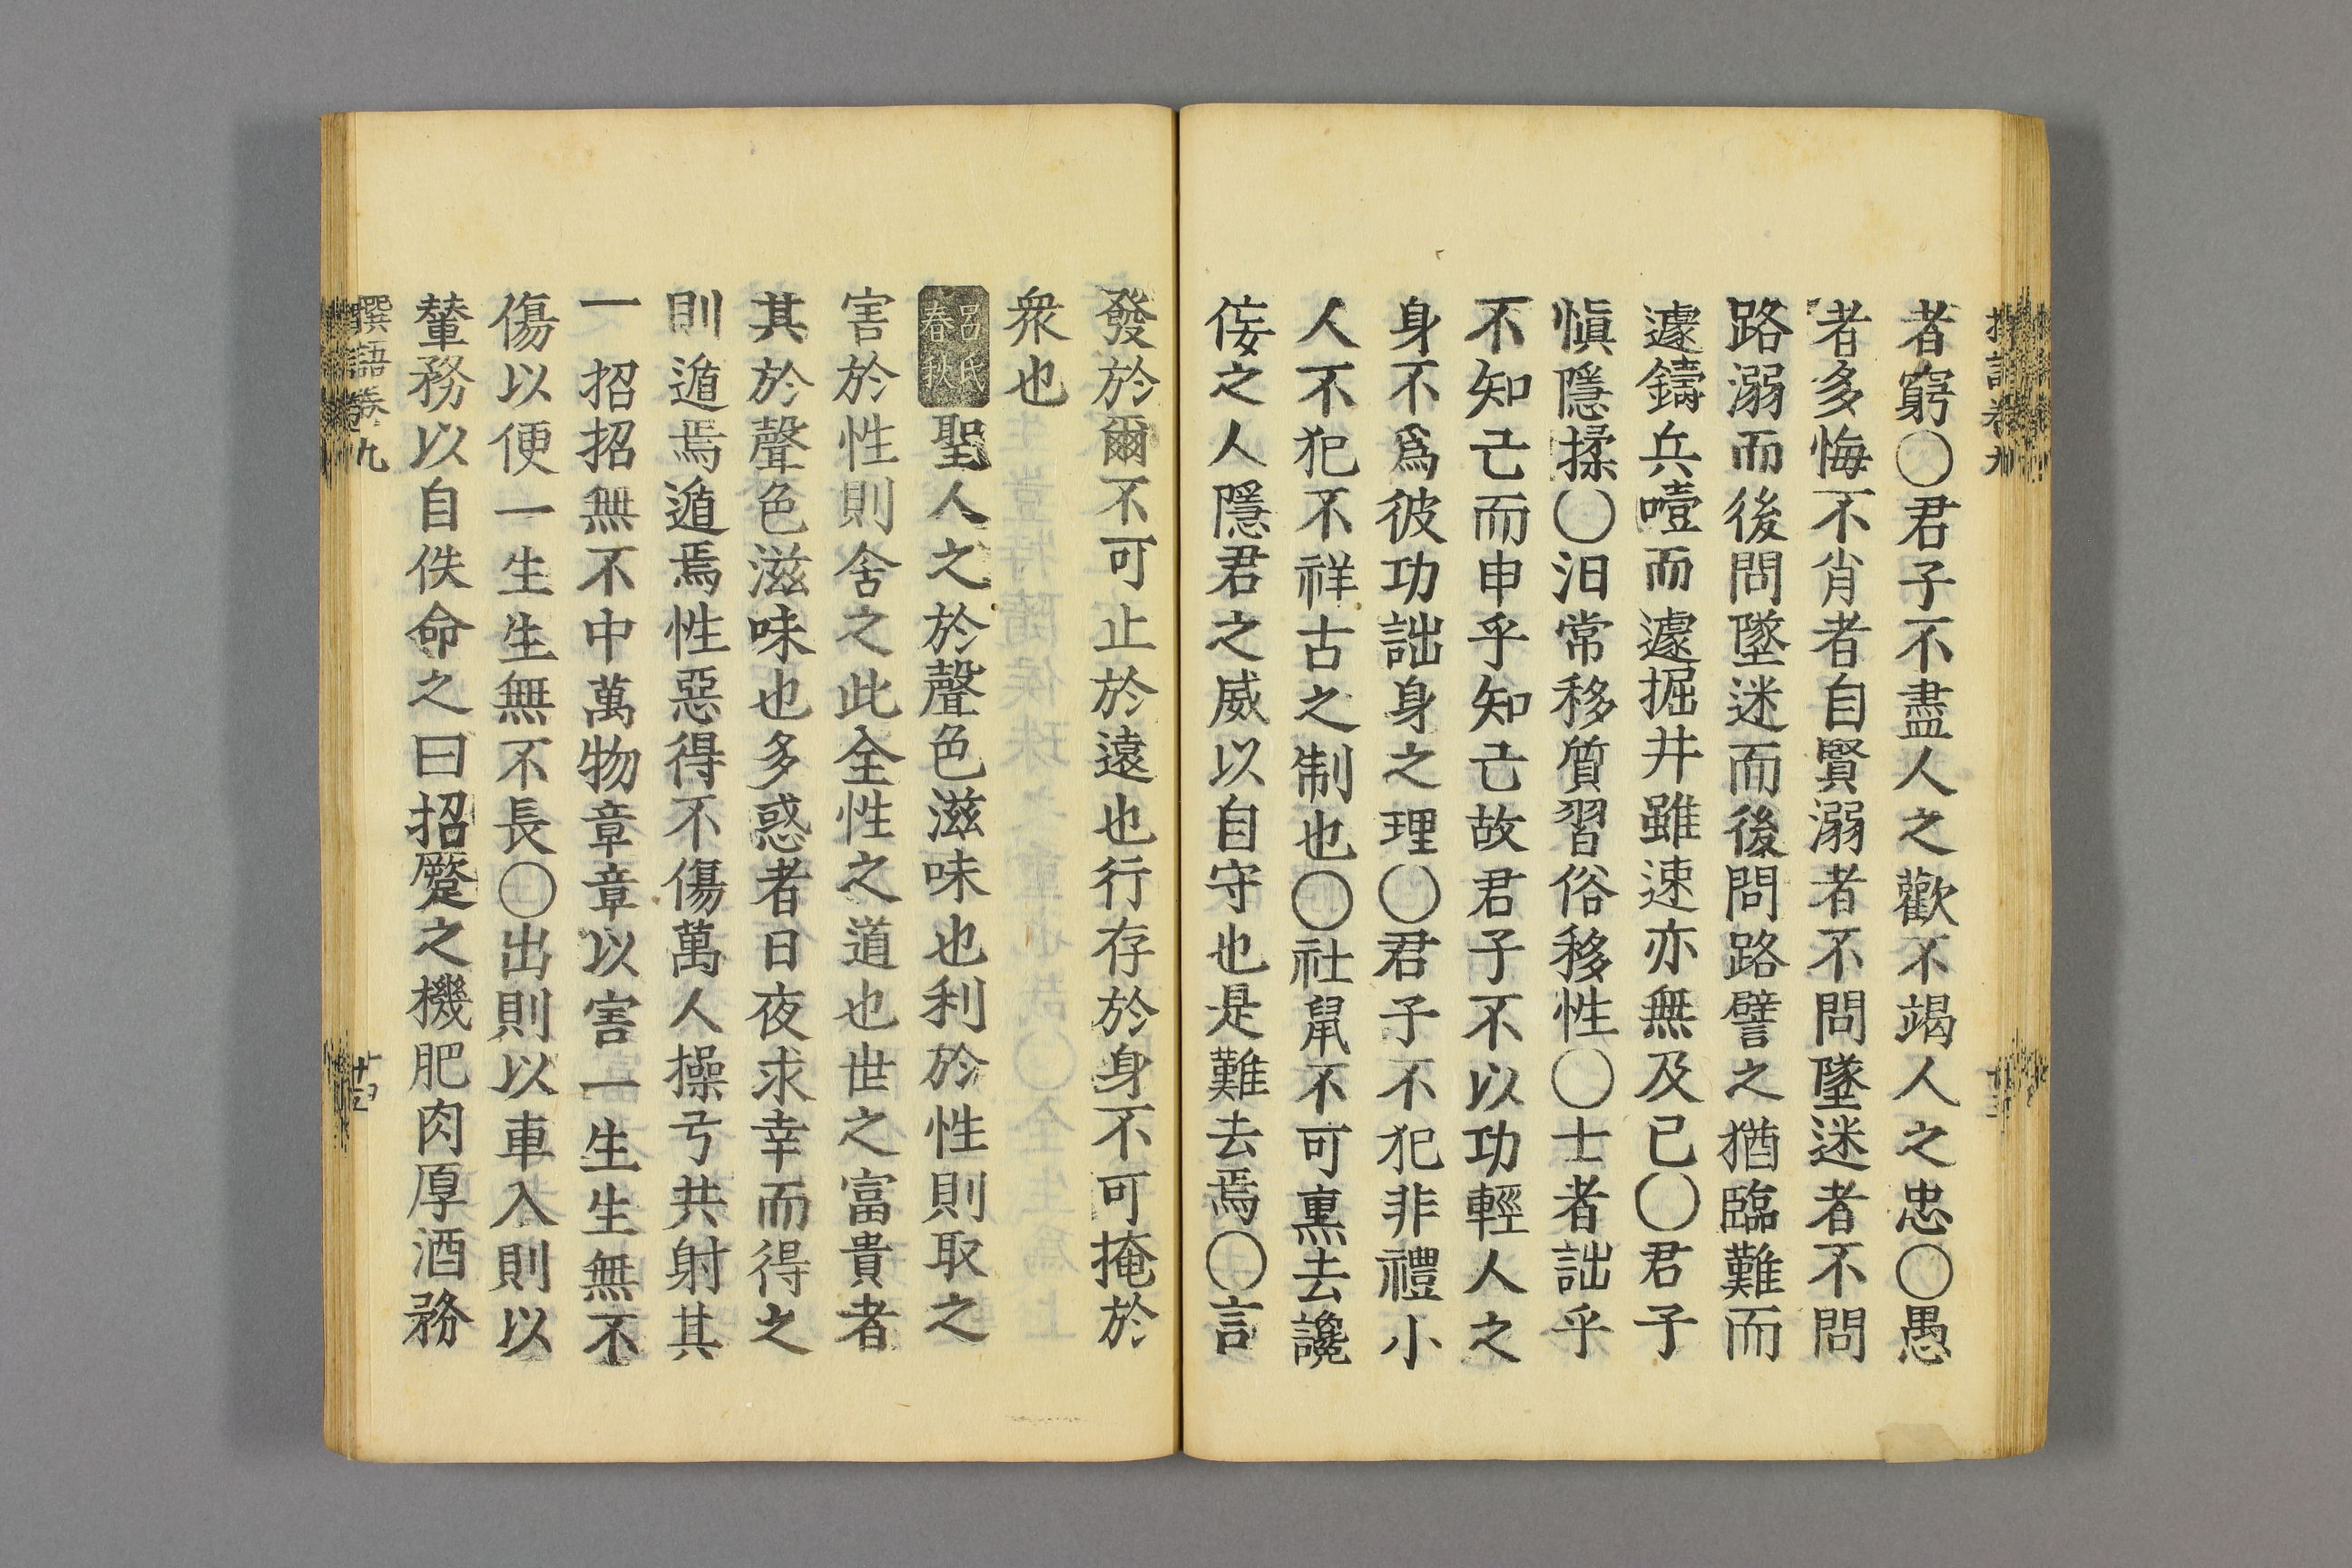 者窮〇君子不盡人之歡不竭人之忠〇愚
者多悔不肖者自賢溺者不問墜迷者不問
路溺而後問墜迷而後問路譬之猶臨難而
遽鑄兵噎而遽掘井雖速亦無及已〇君子
愼隱揉〇汩常移質習俗移性〇士者詘乎
不知己而申乎知己故君子不以功輕人之
身不爲彼功詘身之理〇君子不犯非禮小
人不犯不祥古之制也〇社鼠不可熏去讒
佞之人隱君之威以自守也是難去焉〇言
發於爾不可止於遠也行存於身不可掩於
衆也
呂氏春秋 聖人之於聲色滋味也利於性則取之
害於性則舍之此全性之道也世之富貴者
其於聲色滋味也多惑者日夜求幸而得之
則遁焉遁焉性惡得不傷萬人操弓共射其
一招招無不中萬物章章以害一生生無不
傷以便一生生無不長〇出則以車入則以
輦務以自佚命之曰招蹷之機肥肉厚酒務
撰語卷九
十四